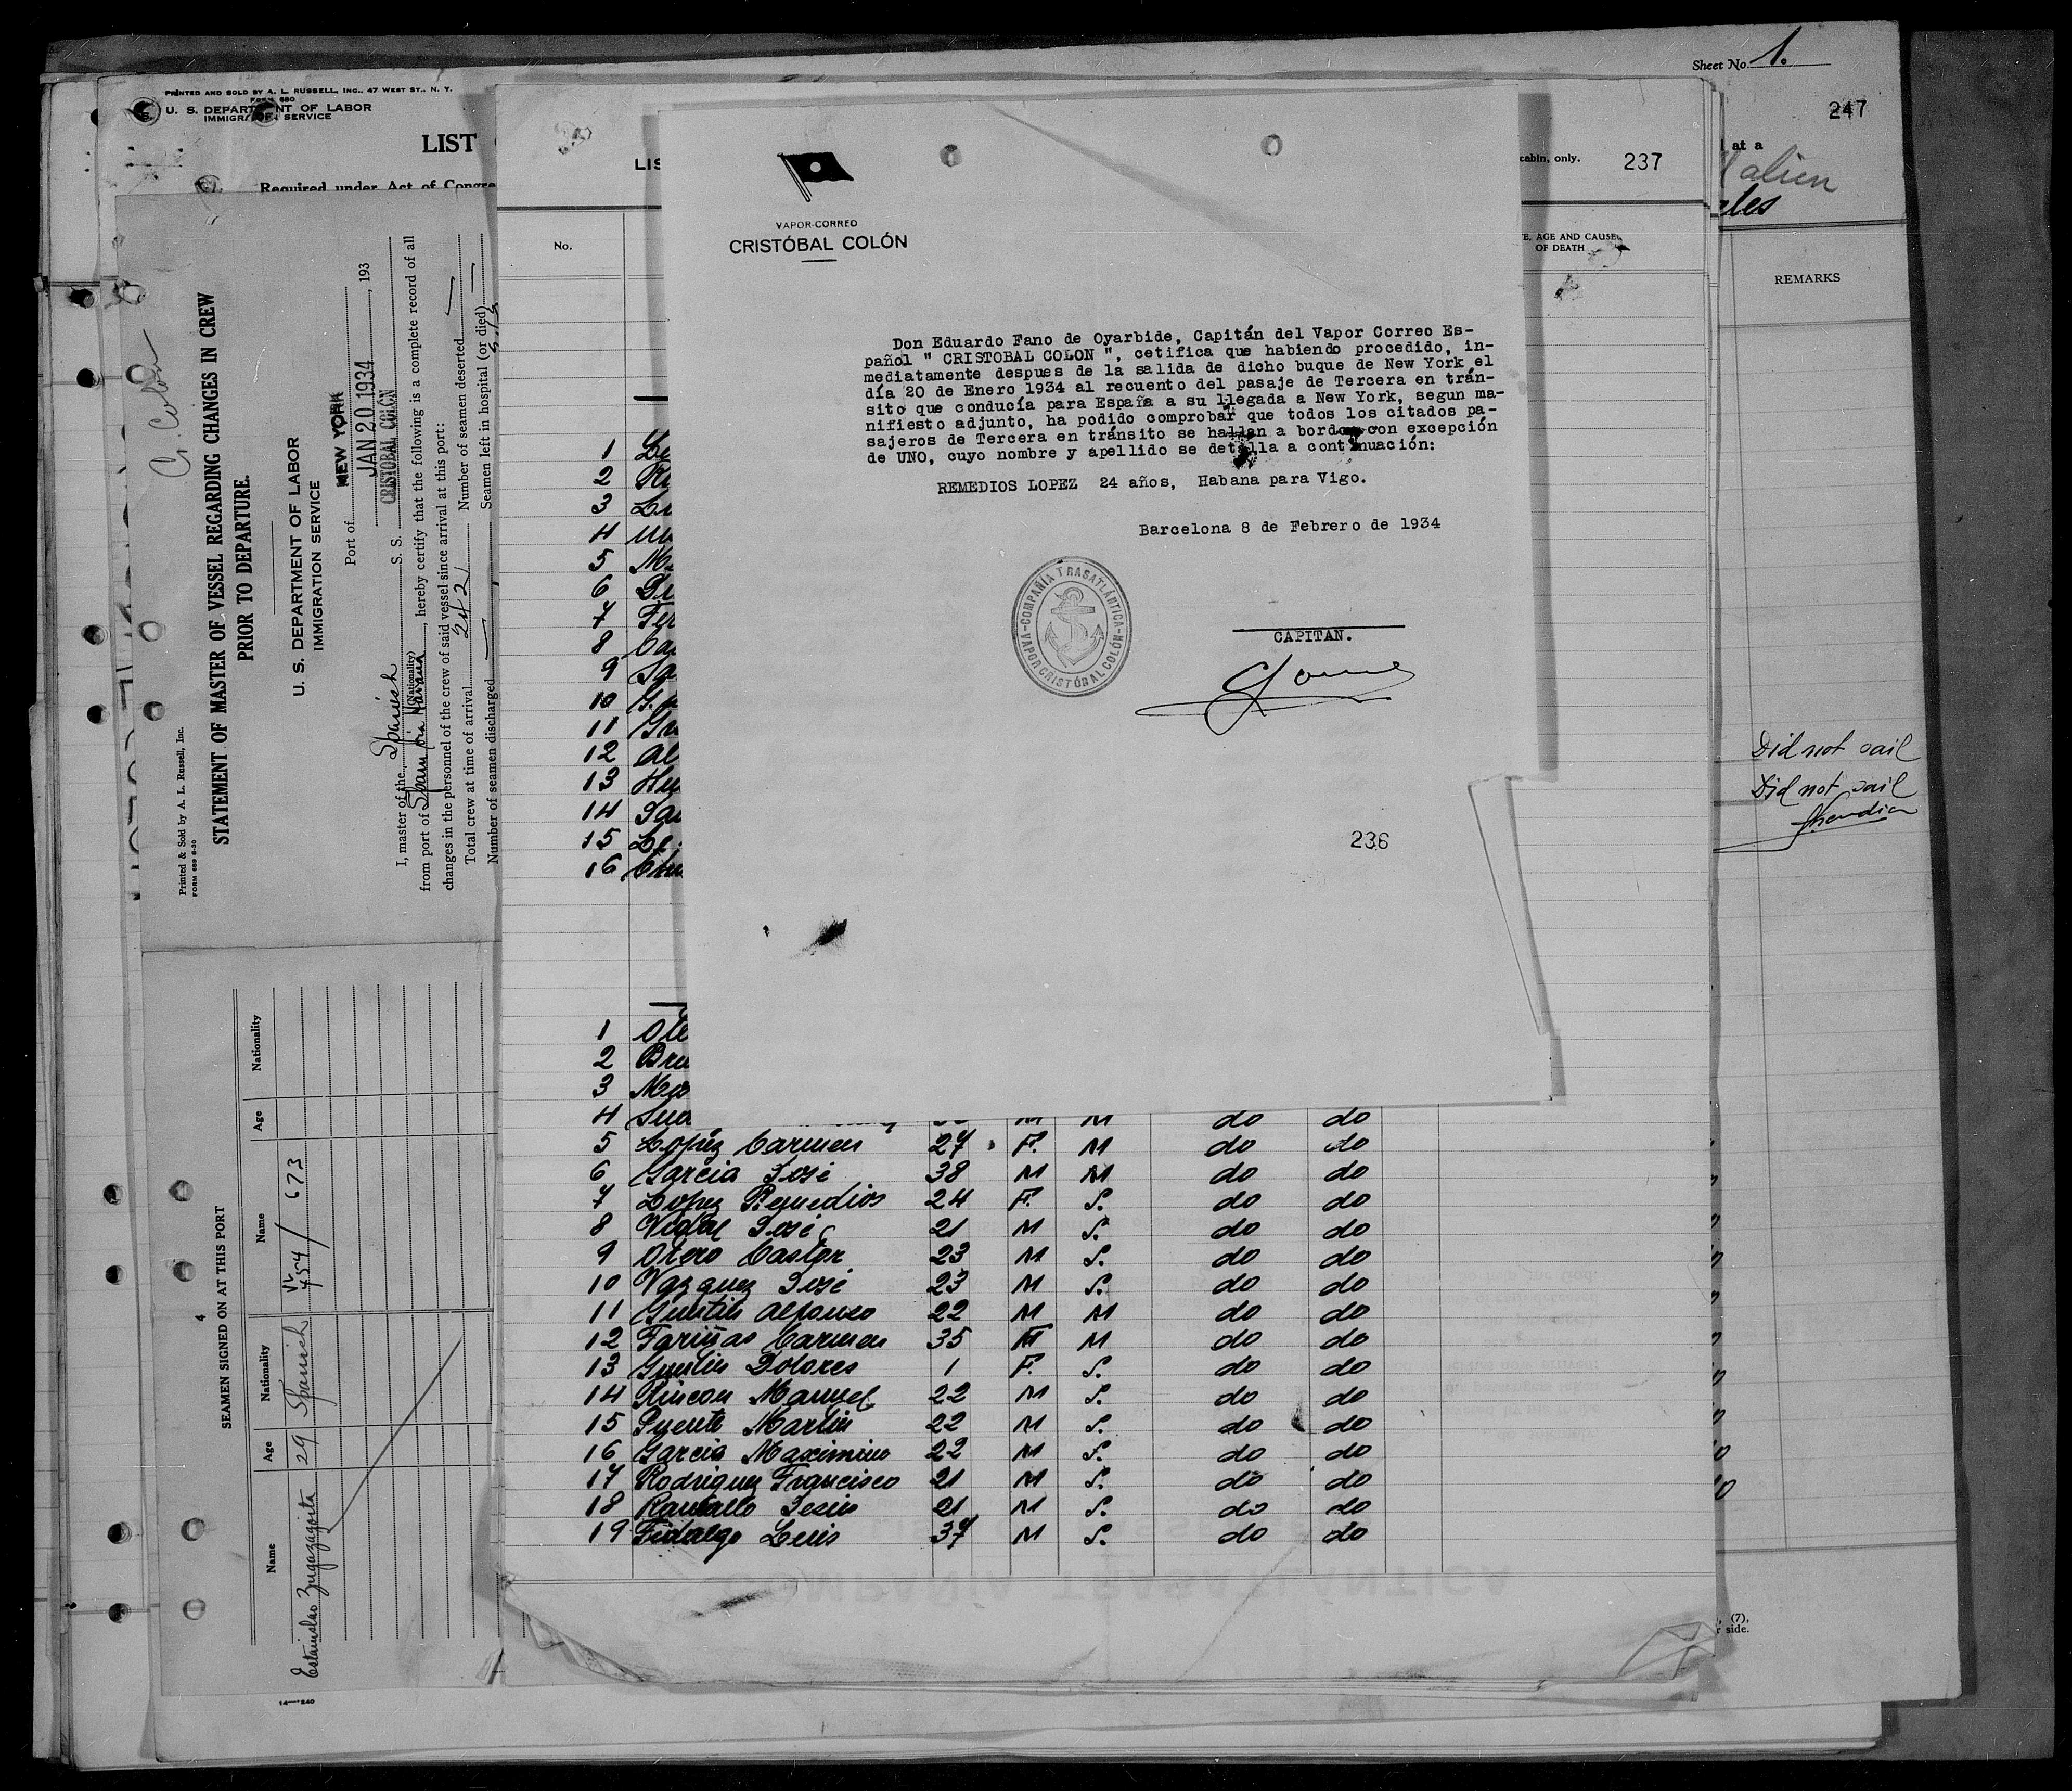 Sheet No. 1.
247
at a
alien
REMARKS
Did not sail
Did not sail
(7),
side.
PRINTED AND SOLD BY A. L. RUSSELL, INC., 47 WEST ST., N. Y.
FORM 680
U. S. DEPARTMENT OF LABOR
IMMIGRATION SERVICE
LIST
Required under Act of Congre
C. Colón
Printed & Sold by A. L. Russell, Inc.
FORM 689 8-30
STATEMENT OF MASTER OF VESSEL REGARDING CHANGES IN CREW
PRIOR TO DEPARTURE.
U. S. DEPARTMENT OF LABOR
IMMIGRATION SERVICE
Port of NEW YORK
JAN 20 1934, 193
I, master of the Spanish S. S. CRISTOBAL COLÓN
(Nationality)
from port of Spain via Havana, hereby certify that the following is a complete record of all
changes in the personnel of the crew of said vessel since arrival at this port:
Total crew at time of arrival 242 Number of seamen deserted —
Number of seamen discharged — Seamen left in hospital (or died) —
4
SEAMEN SIGNED ON AT THIS PORT
Name Age Nationality Name Age Nationality
Estanislao Zugazagoitia 29 Spanish
VL
454/ 673
14—240
LIS
cabin, only. 237
No.
E, AGE AND CAUSE
OF DEATH
1 Le
2
3
4
5
6
7 Fer
8
9
10
11
12 Al
13
14
15 Le
16
1 Ote
2
3
4
M M do do
5 Lopez Carmen 27 F. M do do
6 Garcia José 38 M M do do
7 Lopez Remedios 24 F. S. do do
8 Vidal José 21 M S. do do
9 Otero Castor 23 M S. do do
10 Vazquez José 23 M S. do do
11 Guntin Alfonso 22 M M do do
12 Fariñas Carmen 35 F M do do
13 Guntin Dolores 1 F. S. do do
14 Rincon Manuel 22 M S. do do
15 Puente Martin 22 M S. do do
16 Garcia Maximino 22 M S. do do
17 Rodriguez Francisco 21 M S. do do
18 Jesus 21 M S. do do
19 Fidalgo Luis 37 M S. do do
VAPOR-CORREO
CRISTÓBAL COLÓN
Don Eduardo Fano de Oyarbide, Capitán del Vapor Correo Es-
pañol " CRISTOBAL COLON ", cetifica que habiendo procedido, in-
mediatamente despues de la salida de dicho buque de New York el
día 20 de Enero 1934 al recuento del pasaje de Tercera en trán-
sito que conducía para España a su llegada a New York, segun ma-
nifiesto adjunto, ha podido comprobar que todos los citados pa-
sajeros de Tercera en tránsito se hallan a bordo con excepción
de UNO, cuyo nombre y apellido se detalla a continuación:
REMEDIOS LOPEZ 24 años, Habana para Vigo.
Barcelona 8 de Febrero de 1934
COMPAÑIA TRASATLÁNTICA
VAPOR CRISTÓBAL COLÓN
CAPITAN.
236